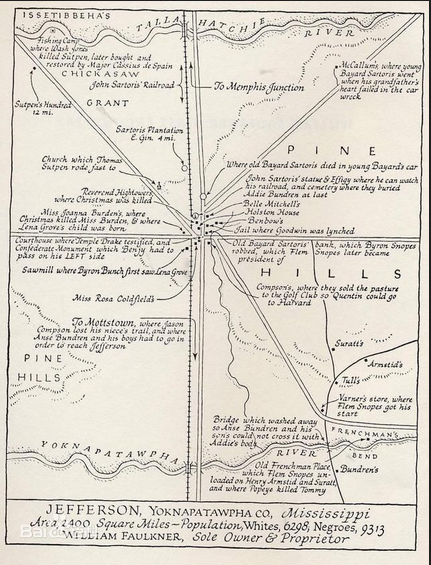 ISSETIBBEHA'S
TALLAHATCHIE
RIVER
Fishing Camp
where Wash Jones
killed Sutpen, later bought and
restored by Major Cassius de Spain
CHICKASAW
John Sartoris' Railroad
Sutpen's Hundred
12 mi.
GRANT
To Memphis Junction
McCallum's, where young
Bayard Sartoris went
when his grandfather's
heart failed in the car
wreck
Sartoris Plantation
& Gin. 4 mi.
PINE
Church which Thomas
Sutpen rode fast to
Where old Bayard Sartoris died in young Bayard's car
John Sartoris' Statue & Effigy where he can watch
his railroad, and cemetery where they buried
Addie Bundren at last
Reverend Hightower's,
where Christmas was killed
Belle Mitchell's
Holston House
Benbow's
Jail where Goodwin was lynched
Miss Joanna Burden's, where
Christmas killed Miss Burden, & where
Lena Grove's child was born
Courthouse where Temple Drake testified, and
Confederate Monument which Benjy had to
pass on his LEFT side
Old Bayard Sartoris' bank, which Byron Snopes
robbed, which Flem Snopes later became
president of
HILLS
Sawmill where Byron Bunch first saw Lena Grove
Compson's, where they sold the pasture
to the Golf Club so Quentin could go
to Harvard
Miss Rosa Coldfield's
To Mottstown, where Jason
Compson lost his niece's trail, and where
Anse Bundren and his boys had to go in
order to reach Jefferson
PINE
HILLS
Suratt's
Armstid's
Tull's
Varner's store, where
Flem Snopes got his
start
Bridge which washed away
so Anse Bundren and his
sons could not cross it with
Addie's body
FRENCHMAN'S
BEND
YOKNAPATAWPHA
RIVER
Old Frenchman Place,
which Flem Snopes un-
loaded on Henry Armstid and Suratt,
and where Popeye killed Tommy
Bundren's
JEFFERSON, YOKNAPATAWPHA CO., Mississippi
Area, 2400 Square Miles - Population, Whites, 6298; Negroes, 9313
WILLIAM FAULKNER, Sole Owner & Proprietor